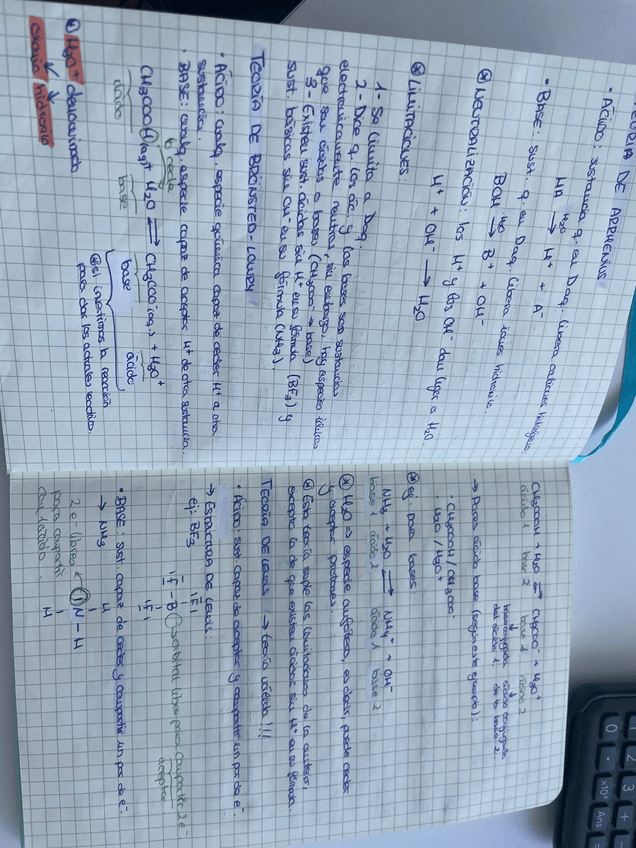 TEORÍA DE ARRHENIUS
• ÁCIDO: sustancia q. en D aq. libera cationes hidrógeno
HA →(H₂O) H⁺ + A⁻
• BASE: sust. q. en D aq. libera iones hidroxilo.
BOH →(H₂O) B⁺ + OH⁻
* NEUTRALIZACIÓN: los H⁺ y los OH⁻ dan lugar a H₂O.
H⁺ + OH⁻ → H₂O
* LIMITACIONES:
1- Se limita a D aq.
2- Dice q. los ác. y las bases son sustancias
eléctricamente neutras, sin embargo, hay especies iónicas
que son ácidos o bases (CH₃COO⁻ → base)
3- Existen sust. ácidas sin H⁺ en su fórmula (BF₃) y
sust. básicas sin OH⁻ en su fórmula (NH₃)
TEORÍA DE BRÖNSTED-LOWRY
• ÁCIDO: cualq. especie química capaz de ceder H⁺ a otra
sustancia.
• BASE: cualq. especie capaz de aceptar H⁺ de otra sustancia.
cede
CH₃COOH(aq) + H₂O ⇌ CH₃COO⁻(aq) + H₃O⁺
ácido base base ácido
* si invertimos la reacción
para dar los actuales reactivos.
* H₃O⁺ denominado
oxonio hidronio
CH₃COOH + H₂O ⇌ CH₃COO⁻ + H₃O⁺
ácido 1 base 2 base 1 ácido 2
base conjugada ácido conjugado
del ácido 1. de la base 2.
→ Pares ácido base (según este ejemplo):
· CH₃COOH / CH₃COO⁻
· H₂O / H₃O⁺
* ej. para bases
NH₃ + H₂O ⇌ NH₄⁺ + OH⁻
base 1 ácido 2 ácido 1 base 2
* H₂O ⇒ especie anfótera, es decir, puede ceder
y aceptar protones.
* Esta teoría suple las limitaciones de la anterior,
excepto la de que existan ácidos sin H⁺ en su fórmula.
TEORÍA DE LEWIS → teoría válida!!!
• ÁCIDO: sust. capaz de aceptar y compartir un par de e⁻.
→ ESTRUCTURA DE LEWIS
ej: BF₃
F
F - B → orbital libre para compartir 2 e⁻
F
aceptor
• BASE: sust. capaz de ceder y compartir un par de e⁻.
→ NH₃
H
2 e⁻ libres N - H
para compartir H
con 1 ácido.
0 . ×10ˣ Ans =
1 2 3 +